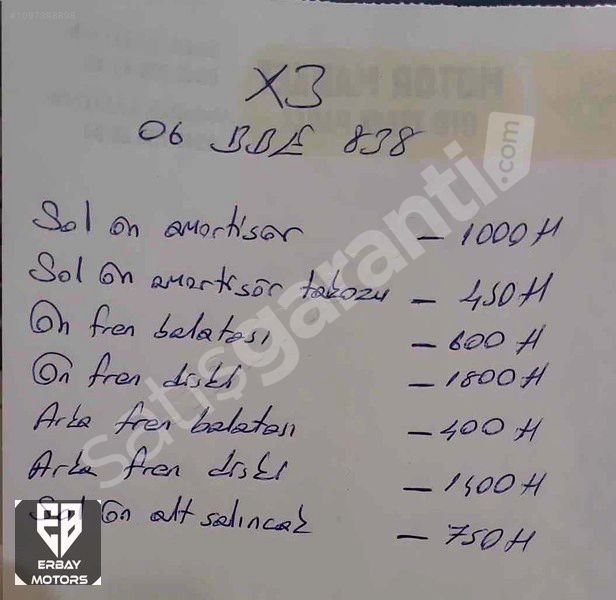 #1097398898
X3
06 BBE 838
Sol ön amortisör - 1000 tl
Sol ön amortisör takozu - 450 tl
Ön fren balatası - 600 tl
Ön fren diski - 1800 tl
Arka fren balatası - 400 tl
Arka fren diski - 1400 tl
Sol ön alt salıncak - 750 tl
satışgaranti.com
EB
ERBAY
MOTORS